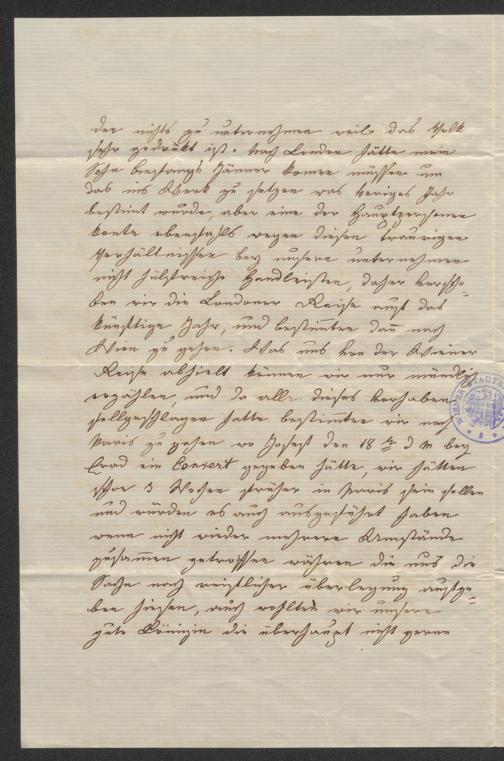 der nichts zu unternehmen weil das Volk
sehr gedrükt ist. Nach London hätte mein
Sohn Anfangs Jänner komen müssen um
das ins Werk zu setzen was voriges Jahr
bestimt wurde, aber eine der Hauptpersonen
konte ebenfahls wegen diesen traurigen
Verhältnissen bey unsern unternehmen
nicht hülfreiche Hand leisten, daher verscho-
ben wir die Londoner Reise auf das
künftige Jahr, und bestimten dan nach
Wien zu gehen. Was uns von der Wiener
Reise abhielt können wir nur mündlich
erzählen, und da alle dieses Vorhaben
fellgeschlagen hatte bestimten wir nach
Paris zu gehen wo Josef den 18ten d M bey
Erad ein Consert gegeben hätte, wir hätten
schon 3 Wochen früher in Paris sein sollen
und würden es auch ausgeführt haben
wenn nicht wieder mehrere Umstände
zusammen getroffen währen die uns die
Sache nach reiflicher überlegung aufge-
ben hiesen, auch wohlten wir unsere
gute Königin die überhaupt nicht gerne
WIENER STADTB